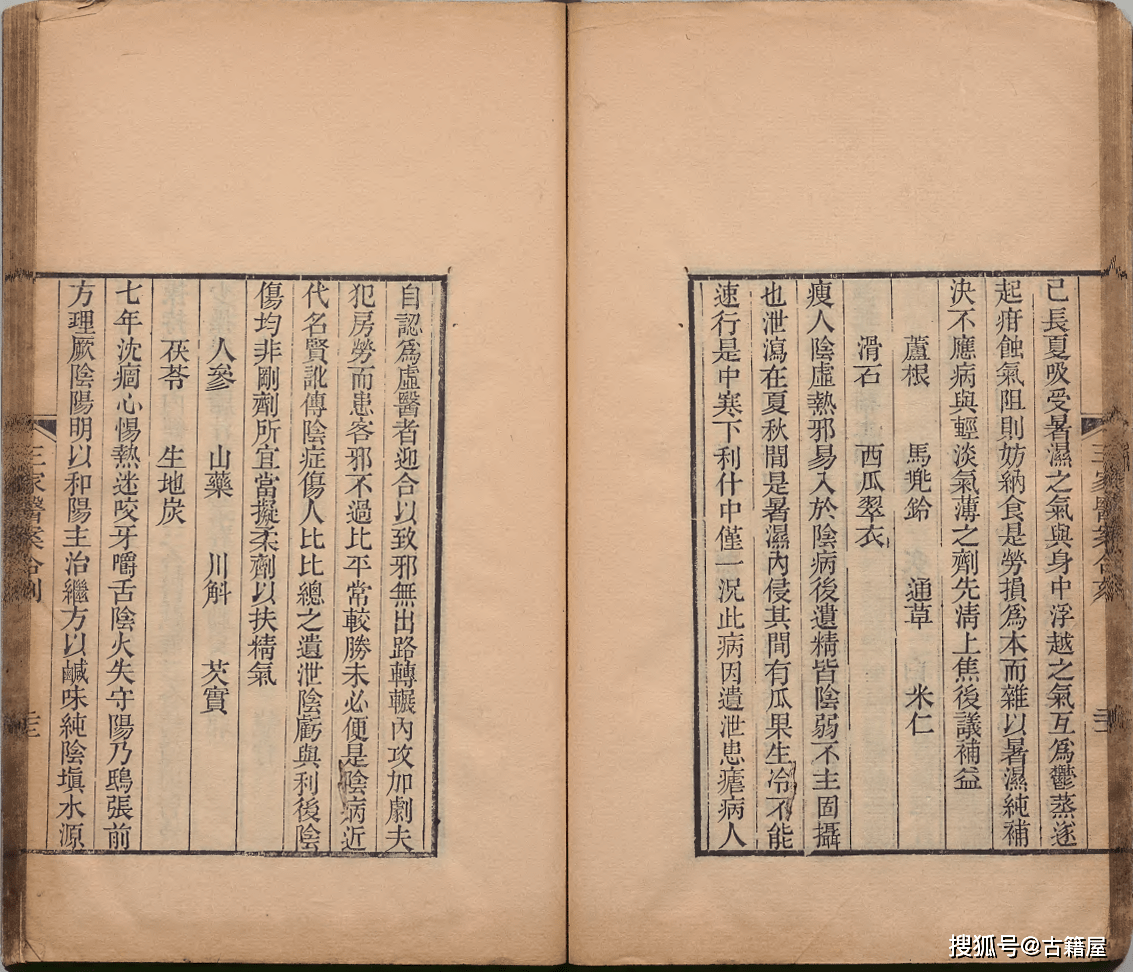 已長夏吸受暑濕之氣與身中浮越之氣互爲鬱蒸遂
起疳蝕氣阻則妨納食是勞損爲本而雜以暑濕純補
決不應病與輕淡氣薄之劑先清上焦後議補益
蘆根　馬兠鈴　通草　米仁
滑石　西瓜翠衣
瘦人陰虛熱邪易入於陰病後遺精皆陰弱不主固攝
也泄瀉在夏秋間是暑濕內侵其間有瓜果生冷不能
速行是中寒下利什中僅一況此病因遺泄患瘧病人
三家醫案合刻
自認爲虛醫者迎合以致邪無出路轉輾內攻加劇夫
犯房勞而患客邪不過比平常較勝未必便是陰病近
代名賢訛傳陰症傷人比比總之遺泄陰虧與利後陰
傷均非剛劑所宜當擬柔劑以扶精氣
人參　山藥　川斛　芡實
茯苓　生地炭
七年沈痼心惕熱迷咬牙嚼舌陰火失守陽乃鴟張前
方理厥陰陽明以和陽主治繼方以鹹味純陰塡水源
三家醫案合刻
搜狐号@古籍屋